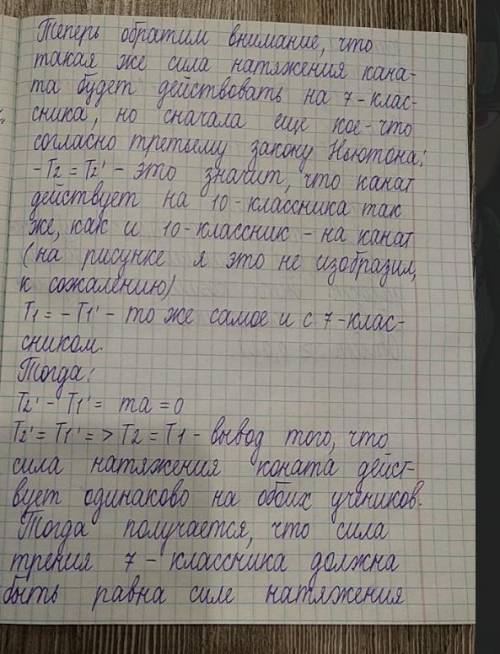 Теперь обратим внимание, что
такая же сила натяжения кана-
та будет действовать на 7-клас-
сника, но сначала еще кое-что
согласно третьему закону Ньютона:
-T2 = T2' - это значит, что канат
действует на 10-классника так
же, как и 10-классник - на канат
(на рисунке я это не изобразил,
к сожалению)
T1 = - T1' - то же самое и с 7-клас-
сником.
Тогда:
T2' - T1' = ma = 0
T2' = T1' = > T2 = T1 - вывод того, что
сила натяжения коната дейст-
вует одинаково на обоих учеников.
Тогда получается, что сила
трения 7 - классника должна
быть равна силе натяжения